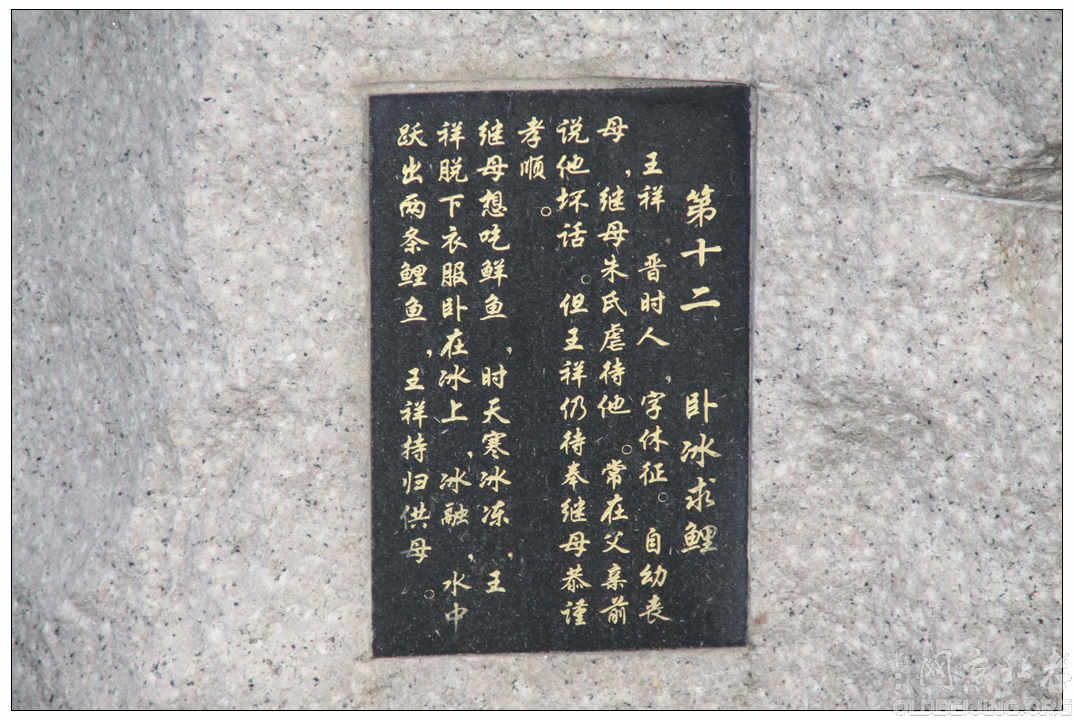 第十二 卧冰求鲤
王祥 晋时人，字休征。自幼丧
母，继母朱氏虐待他。常在父亲前
说他坏话。但王祥仍待奉继母恭谨
孝顺。
继母想吃鲜鱼，时天寒冰冻，王
祥脱下衣服卧在冰上，冰融，水中
跃出两条鲤鱼，王祥持归供母。
老北京网
OLDBEIJING.ORG